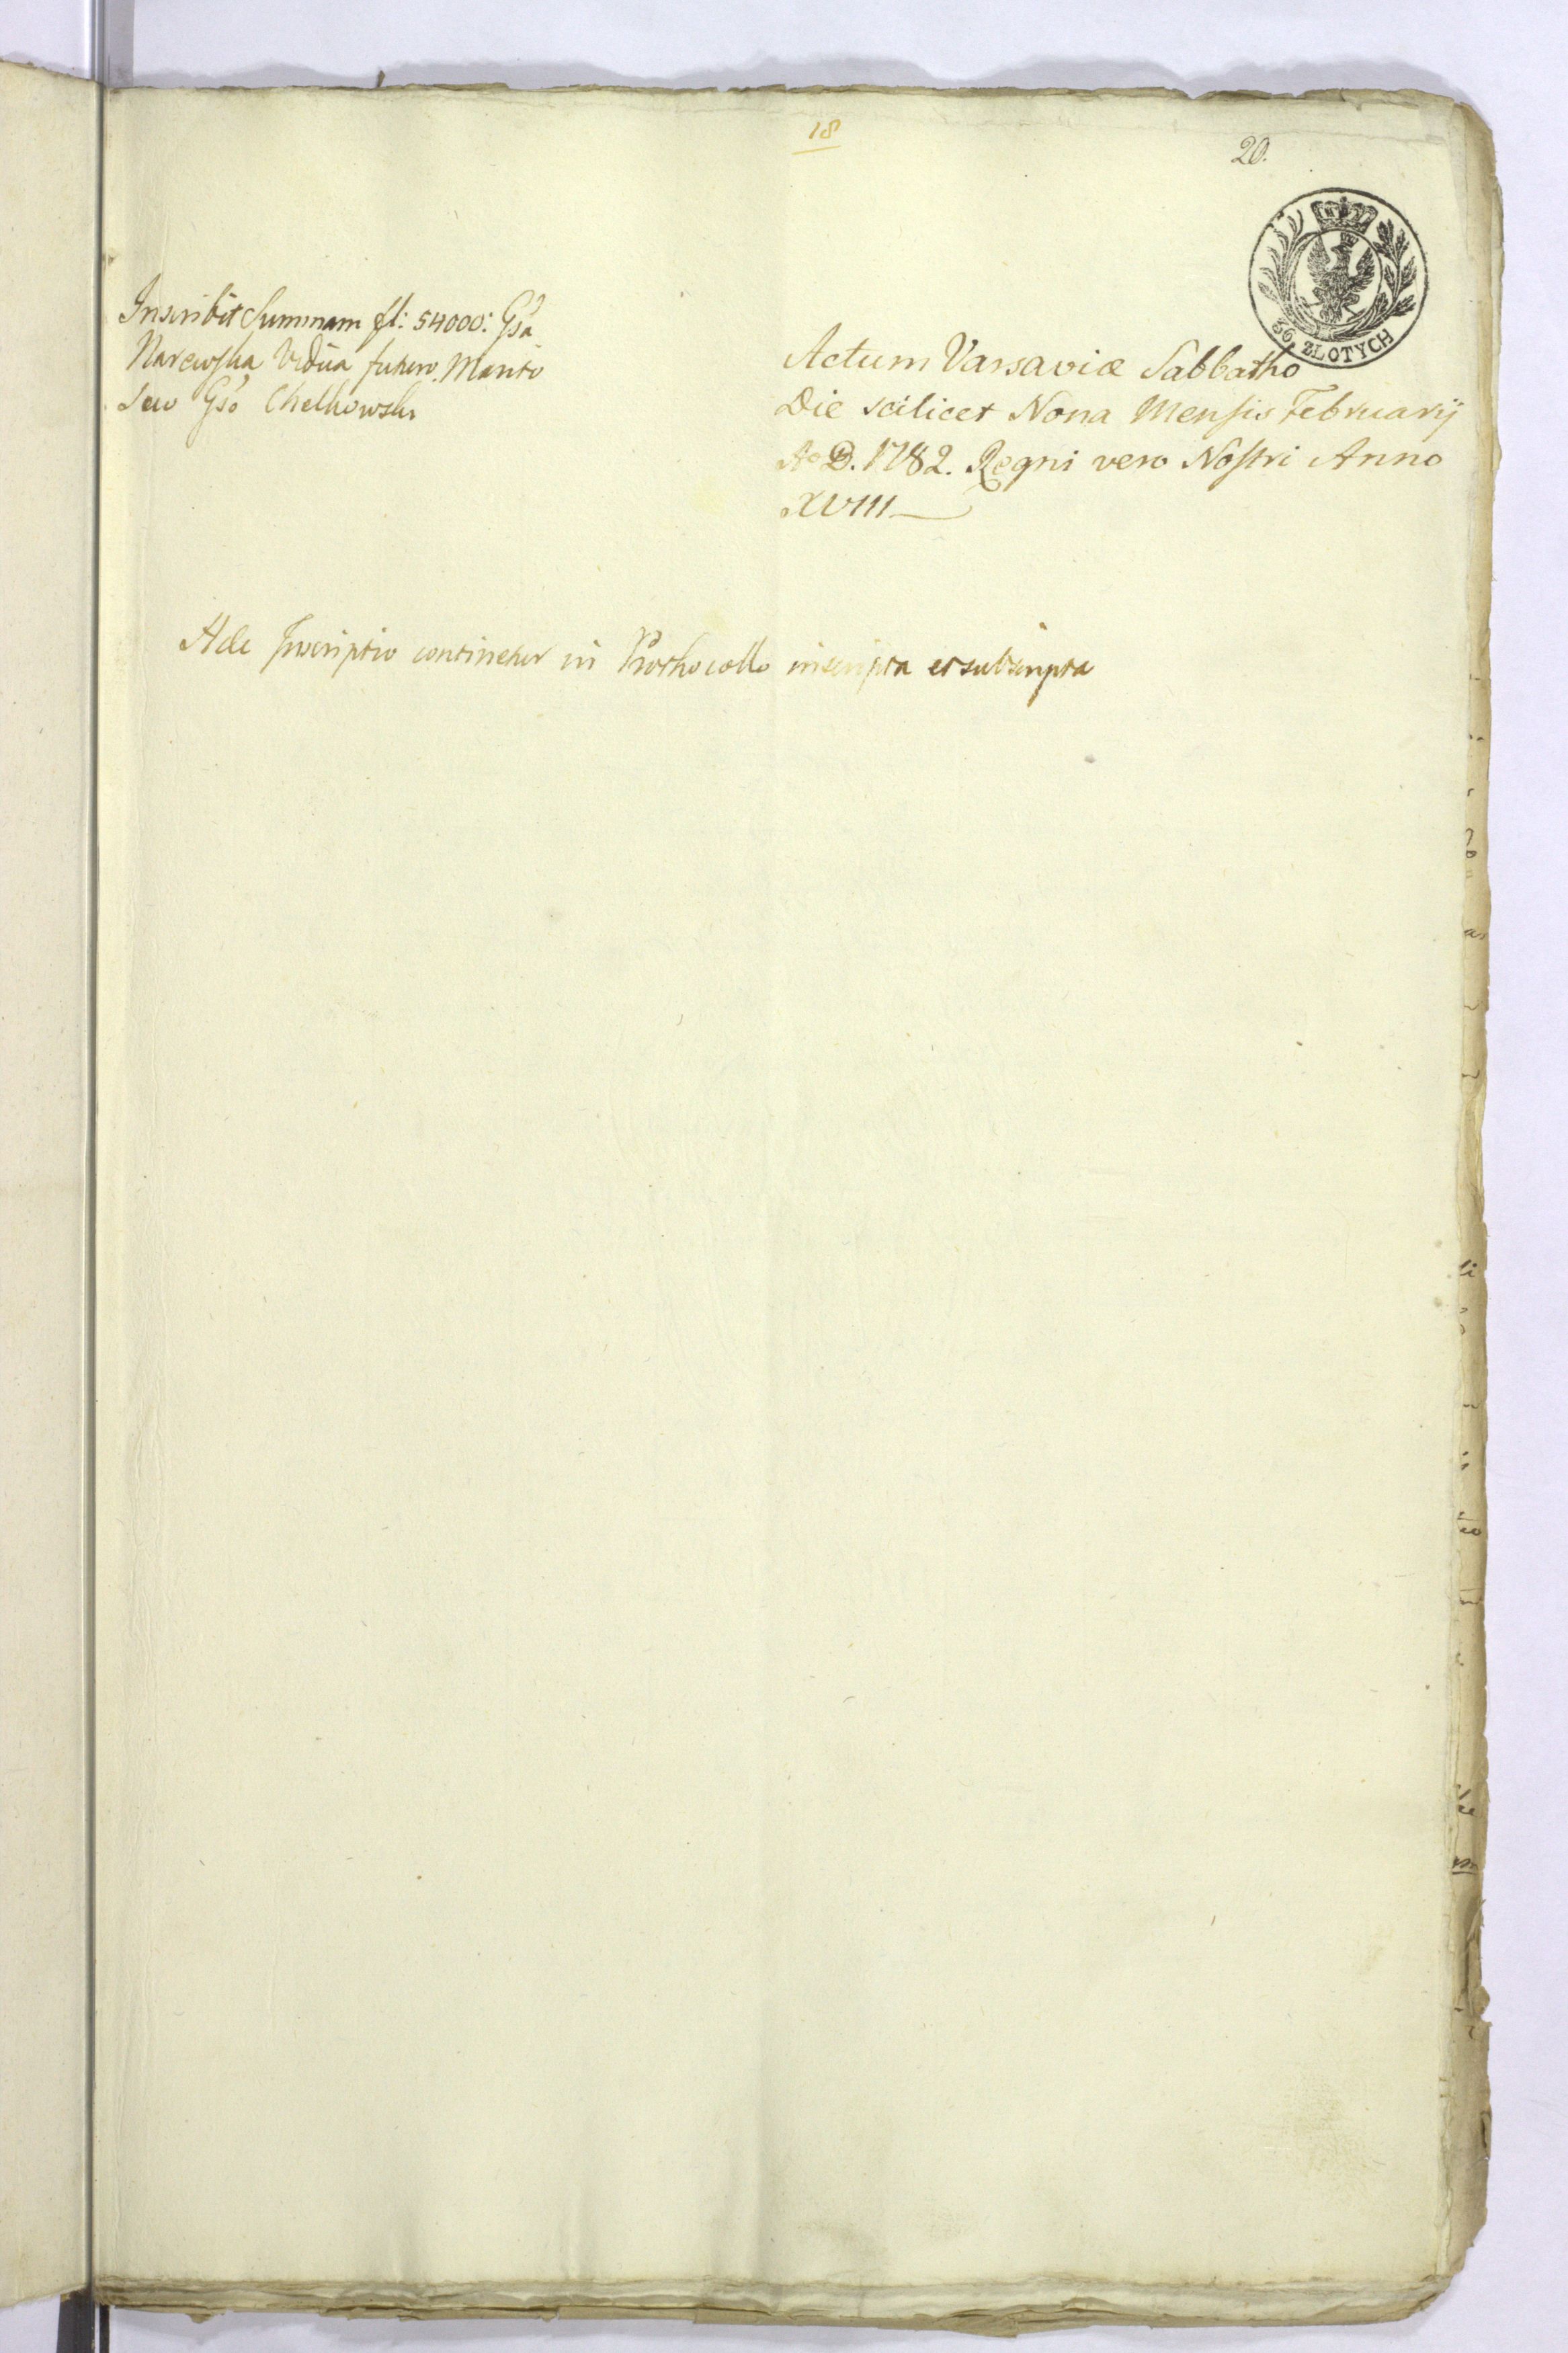 18
20.
36 ZŁOTYCH
Inscribit Summam fl: 54000: Gsa
Narewska Vidua futuro Marito
Suo Gso Chelkowski
Actum Varsaviæ Sabbatho
Die scilicet Nona Mensis Februarij
Ao D. 1782. Regni vero Nostri Anno
XVIII
Inscriptio continetur in Prothocollo inscripta et subscripta